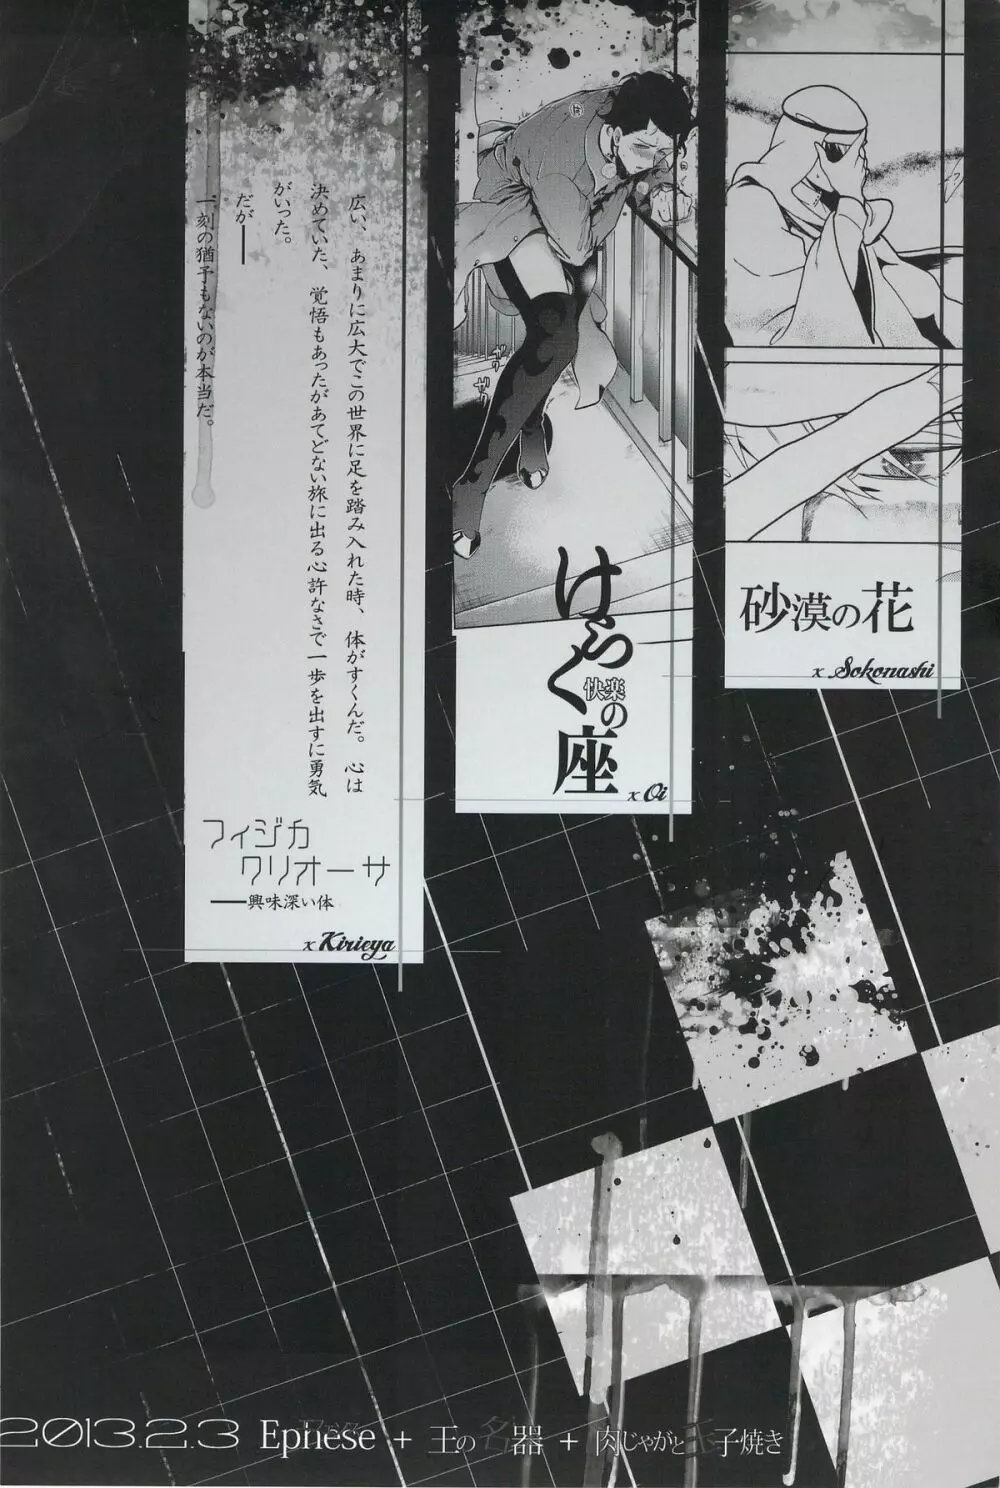 砂漠の花
x Sokonashi
けらくの
快楽
座
x Oi
ギリ
ギリ
広い、あまりに広大でこの世界に足を踏み入れた時、体がすくんだ。心は
決めていた、覚悟もあったがあてどない旅に出る心許なさで一歩を出すに勇気
がいった。
だが――
一刻の猶予もないのが本当だ。
フィジカ
クリオーサ
――興味深い体
x Kirieya
2013.2.3 Ephese + 王の名器 + 肉じゃがと玉子焼き